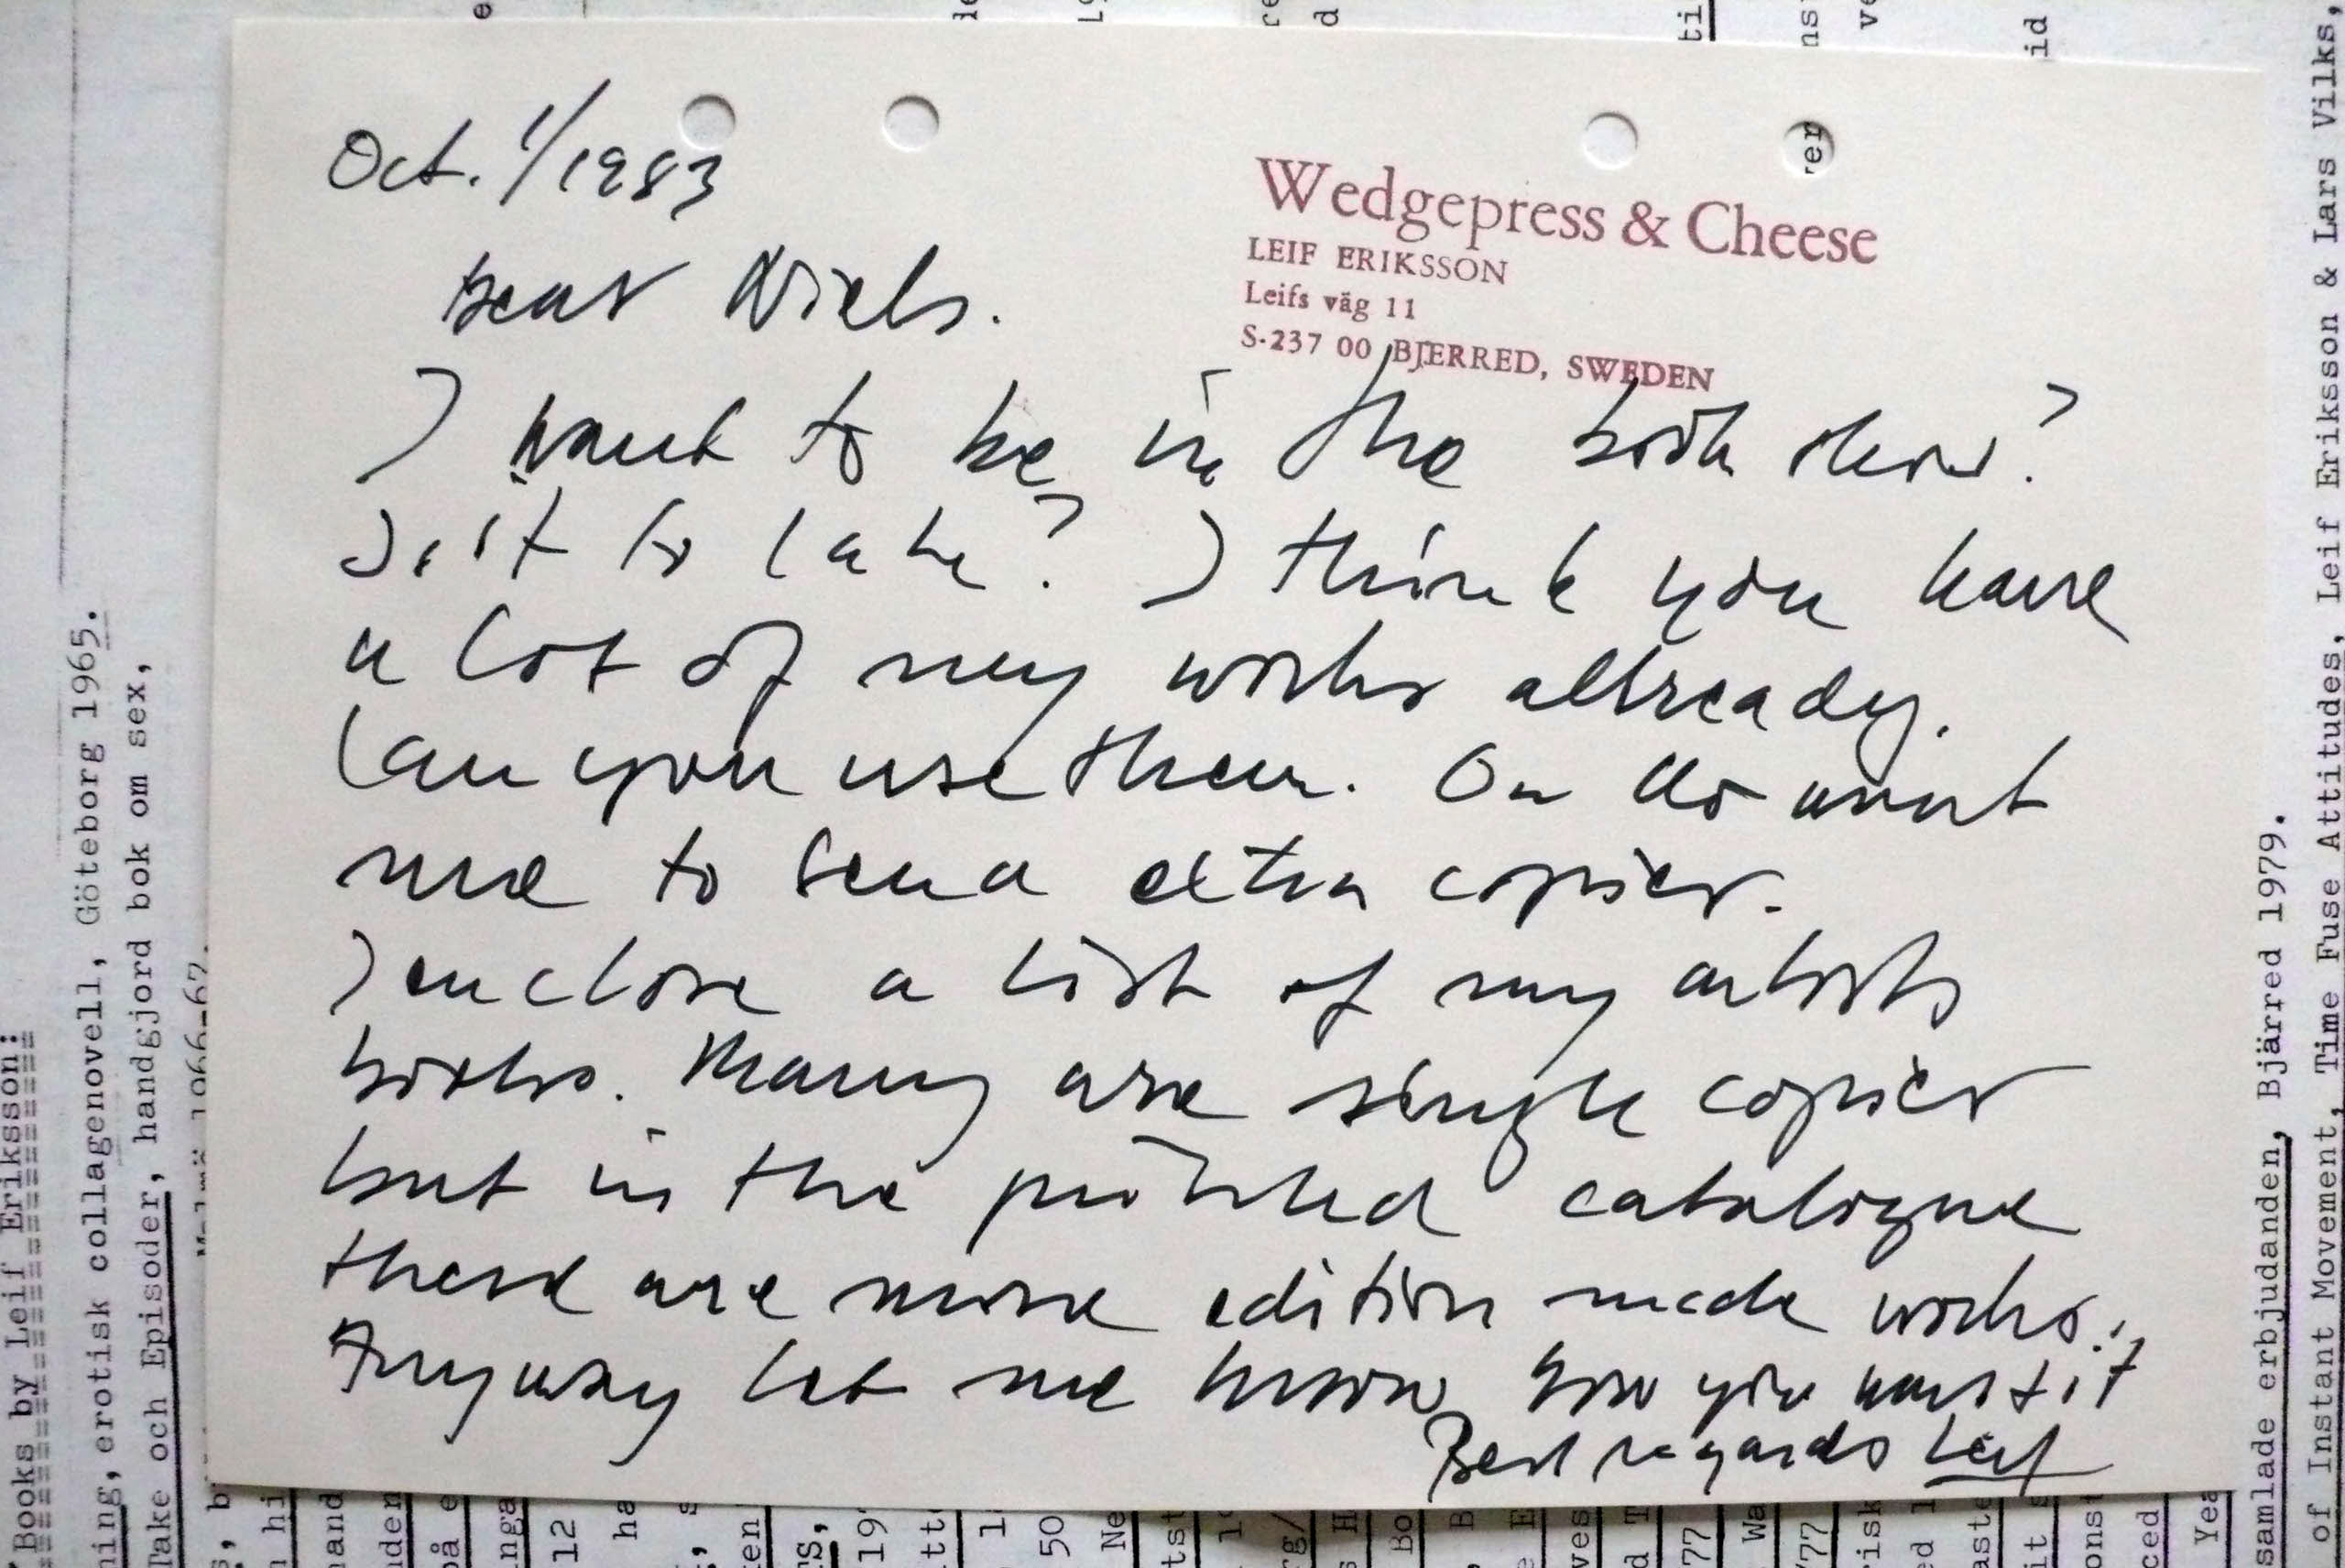 Oct. 1/1983
Wedgepress & Cheese
LEIF ERIKSSON
Leifs väg 11
S-237 00 BJERRED, SWEDEN
Dear Niels.
I want to be in the book show?
Is it to late? I think you have
a lot of my works allready.
Can you use them. Or do want
me to send extra copies.
I enclose a list of my artists
books. Many are single copies
but in the printed catalogue
there are more edition made works.
Anyway let me know how you want it
Best regards Leif
Books by Leif Eriksson:
ning, erotisk collagenovell, Göteborg 1965.
Take och Episoder, handgjord bok om sex,
1966-67.
samlade erbjudanden, Bjärred 1979.
of Instant Movement, Time Fuse Attitudes, Leif Eriksson & Lars Vilks,